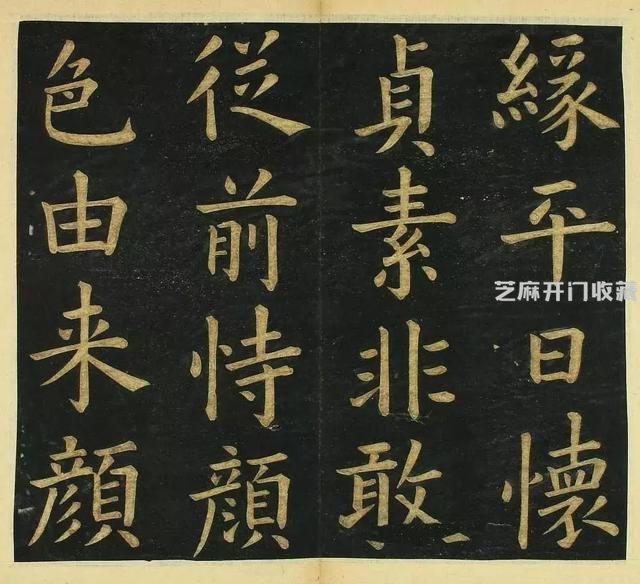 緣平日懷
貞素非敢
從前恃顔
色由来顔
芝麻开门收藏